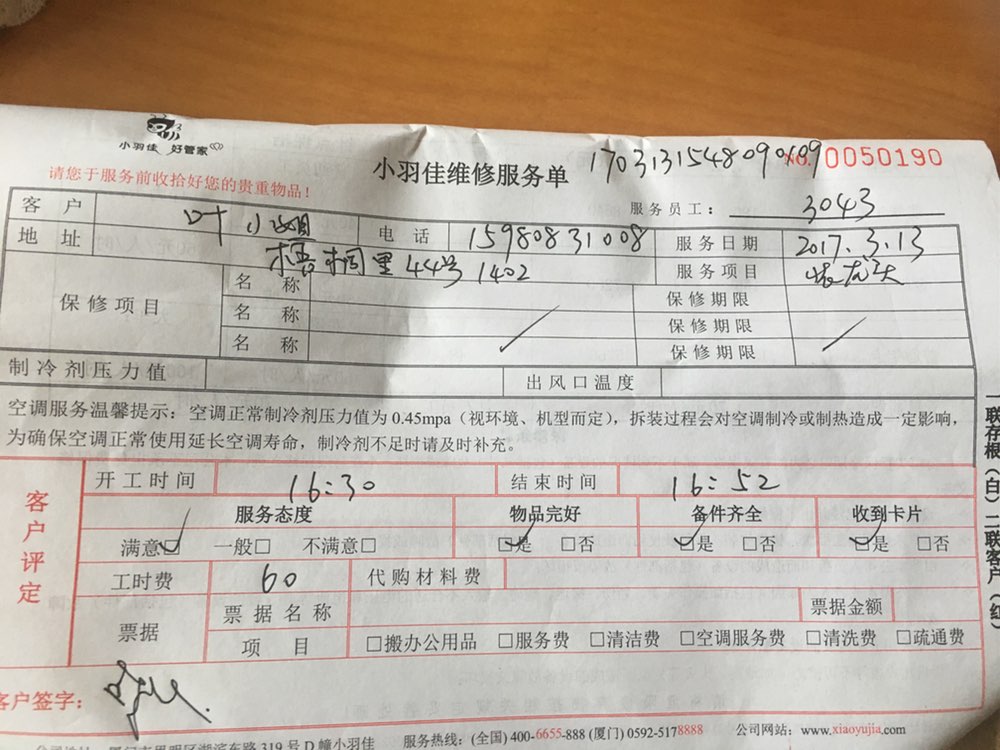 小羽佳 好管家
小羽佳维修服务单
1703131548090109
No.0050190
请您于服务前收拾好您的贵重物品！
服务员工： 3043
客户 叶小姐 电话 15980831008 服务日期 2017.3.13
地址 梧桐里44号1402 服务项目
保修项目 名称 保修期限
名称 保修期限
名称 保修期限
制冷剂压力值 出风口温度
空调服务温馨提示：空调正常制冷剂压力值为0.45mpa（视环境、机型而定），拆装过程会对空调制冷或制热造成一定影响，
为确保空调正常使用延长空调寿命，制冷剂不足时请及时补充。
客户评定
开工时间 16:30 结束时间 16:52
服务态度 物品完好 备件齐全 收到卡片
满意☑ 一般□ 不满意□ ☑是 □否 ☑是 □否 ☑是 □否
工时费 60 代购材料费
票据 票据名称 票据金额
项目 □搬办公用品 □服务费 □清洁费 □空调服务费 □清洗费 □疏通费
客户签字：
319号D幢小羽佳 服务热线：(全国) 400-6655-888 (厦门) 0592-5178888 公司网站：www.xiaoyujia.com
一联存根（白）二联客户（红）